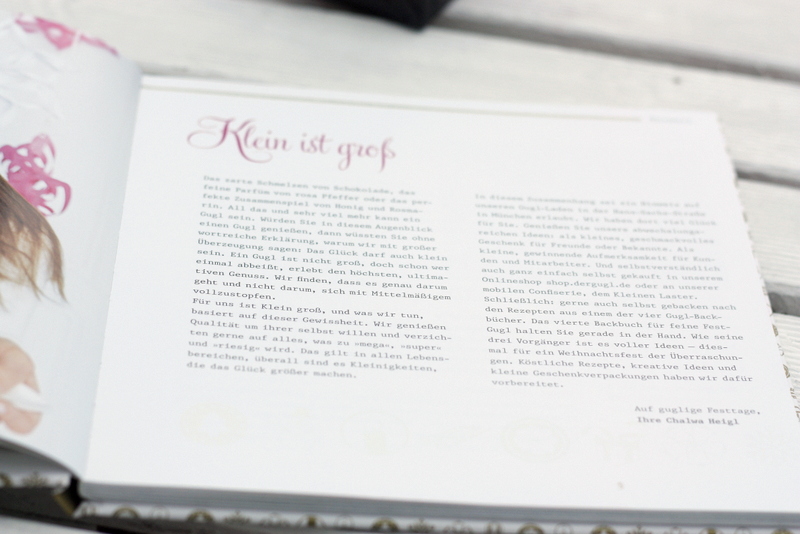 Klein ist groß
Das zarte Schmelzen von Schokolade, das
feine Parfüm von rosa Pfeffer oder das per-
fekte Zusammenspiel von Honig und Rosma-
rin. All das und sehr viel mehr kann ein
Gugl sein. Würden Sie in diesem Augenblick
einen Gugl genießen, dann wüssten Sie ohne
wortreiche Erklärung, warum wir mit großer
Überzeugung sagen: Das Glück darf auch klein
sein. Ein Gugl ist nicht groß, doch schon wer
einmal abbeißt, erlebt den höchsten, ultima-
tiven Genuss. Wir finden, dass es genau darum
geht und nicht darum, sich mit Mittelmäßigem
vollzustopfen.
Für uns ist Klein groß, und was wir tun,
basiert auf dieser Gewissheit. Wir genießen
Qualität um ihrer selbst willen und verzich-
ten gerne auf alles, was zu »mega«, »super«
und »riesig« wird. Das gilt in allen Lebens-
bereichen, überall sind es Kleinigkeiten,
die das Glück größer machen.
In diesem Zusammenhang sei ein Hinweis auf
unseren Gugl-Laden in der
in München erlaubt. Wir haben dort viel Glück
für Sie. Genießen Sie unsere abwechslungs-
reichen Ideen: als kleines, geschmackvolles
Geschenk für Freunde oder Bekannte. Als
kleine, gewinnende Aufmerksamkeit für Kun-
den und Mitarbeiter. Und selbstverständlich
auch ganz einfach selbst gekauft in unserem
Onlineshop shop.dergugl.de oder an unserer
mobilen Confiserie, dem Kleinen Laster.
Schließlich: gerne auch selbst gebacken nach
den Rezepten aus einem der vier Gugl-Back-
bücher. Das vierte Backbuch für feine Fest-
Gugl halten Sie gerade in der Hand. Wie seine
drei Vorgänger ist es voller Ideen – dies-
mal für ein Weihnachtsfest der Überraschun-
gen. Köstliche Rezepte, kreative Ideen und
kleine Geschenkverpackungen haben wir dafür
vorbereitet.
Auf guglige Festtage,
Ihre Chalwa Heigl